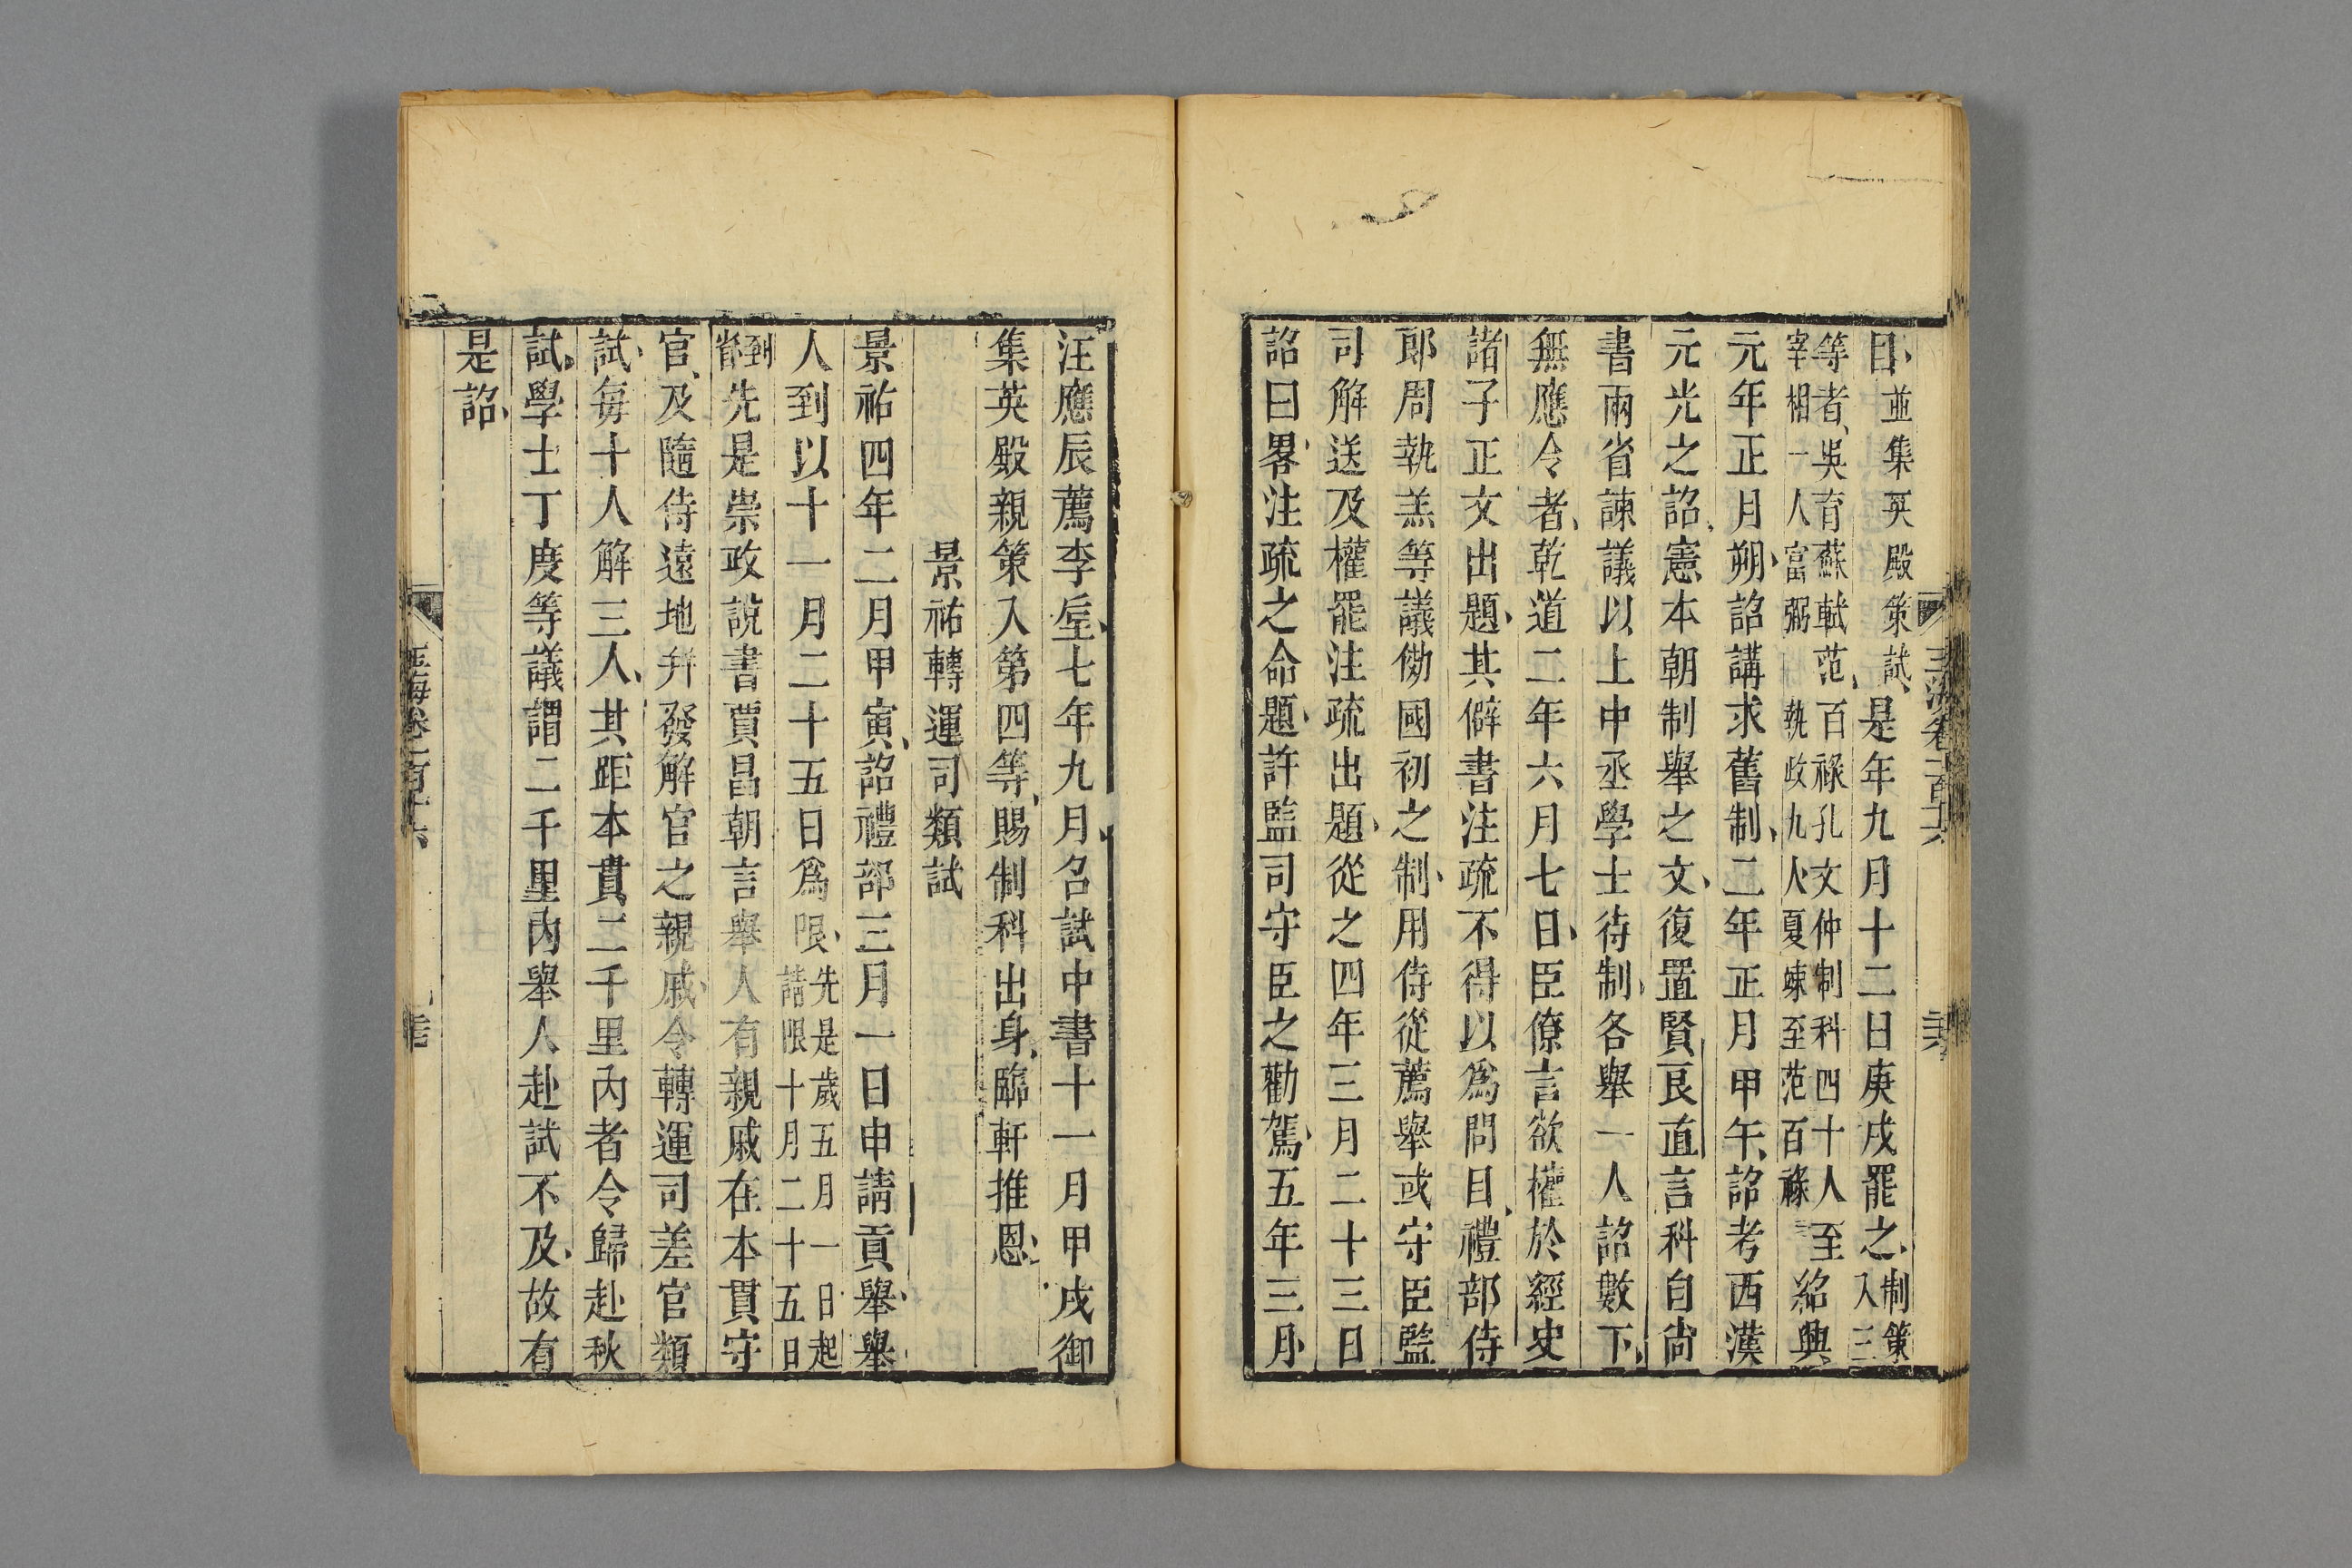 目並集英殿策試是年九月十二日庚戌罷之制策入三
等者吳育蘇軾范百祿孔文仲制科四十人至紹興
宰相一人富弼執政九人夏竦至范百祿
元年正月朔詔講求舊制二年正月甲午詔考西漢
元光之詔憲本朝制舉之文復置賢良直言科自尚
書兩省諫議以上中丞學士待制各舉一人詔數下
無應令者乾道二年六月七日臣僚言欲權於經史
諸子正文出題其僻書注疏不得以爲問目禮部侍
郎周執羔等議倣國初之制用侍從薦舉或守臣監
司解送及權罷注疏出題從之四年三月二十三日
詔曰畧注疏之命題許監司守臣之勸駕五年三月
汪應辰薦李垕七年九月召試中書十一月甲戌御
集英殿親策入第四等賜制科出身臨軒推恩
景祐轉運司類試
景祐四年二月甲寅詔禮部三月一日申請貢舉舉
人到以十一月二十五日爲限先是歲五月一日起
請限十月二十五日
到省先是崇政說書賈昌朝言舉人有親戚在本貫守
官及隨侍遠地并發解官之親戚令轉運司差官類
試每十人解三人其距本貫二千里內者令歸赴秋
試學士丁度等議謂二千里內舉人赴試不及故有
是詔
玉海卷一百十六
玉海卷一百十六